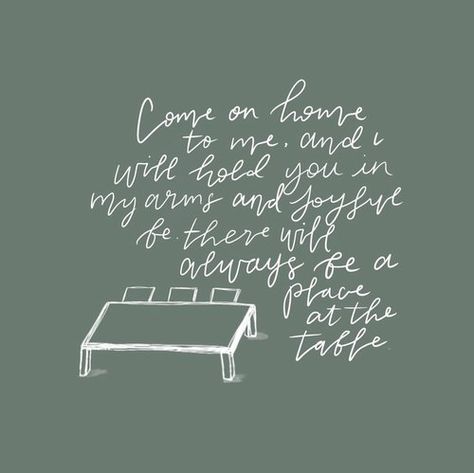 Come on home
to me, and i
will hold you in
my arms and joyful
be. there will
always be a
place
at the
table.